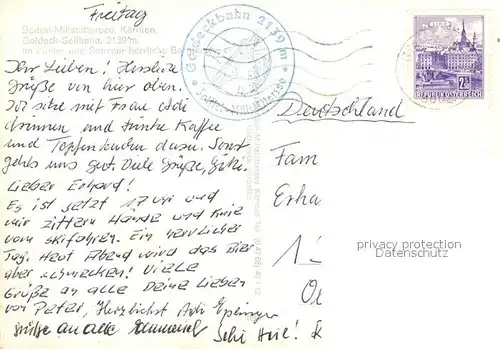 Freitag
Spittal-Millstättersee, Kärnten,
Goldeck-Seilbahn, 2139 m,
im Winter und Sommer herrliche
Goldeckbahn 2139 m
Spittal-Millstättersee
REPUBLIK ÖSTERREICH
Ihr Lieben! Herzliche
Grüße von hier oben.
Ich sitze mit Frau Adi
drinnen und trinke Kaffee
und Topfenkuchen dazu. Sonst
gehts uns gut. Viele Grüße,
Lieber Erhard!
Es ist jetzt 17 Uhr und
mir zittern Hände und Knie
vom Skifahren. Ein herrlicher
Tag. Heut Abend wird das Bier
aber schmecken! Viele
Grüße an alle Deine Lieben
von Peter, Herzlichst Adi
Grüße an alle
Ski Heil!
Deutschland
Fam
Erha
privacy protection
Datenschutz